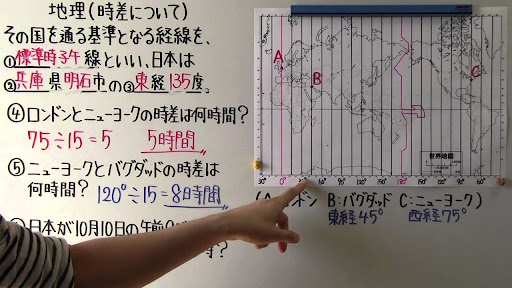 地理(時差について)
その国を通る基準となる経線を、
①標準時子午線といい、日本は
②兵庫県明石市の③東経135度。
④ロンドンとニューヨークの時差は何時間?
75÷15=5 5時間
⑤ニューヨークとバグダッドの時差は
何時間? 120°÷15=8時間
日本が10月10日の午前
時?
A
B
C
世界地図
30° 0° 60° 90° 120° 150° 180° 150° 120° 90° 60°
(A ンドン B:バグダッド C:ニューヨーク)
東経45° 西経75°